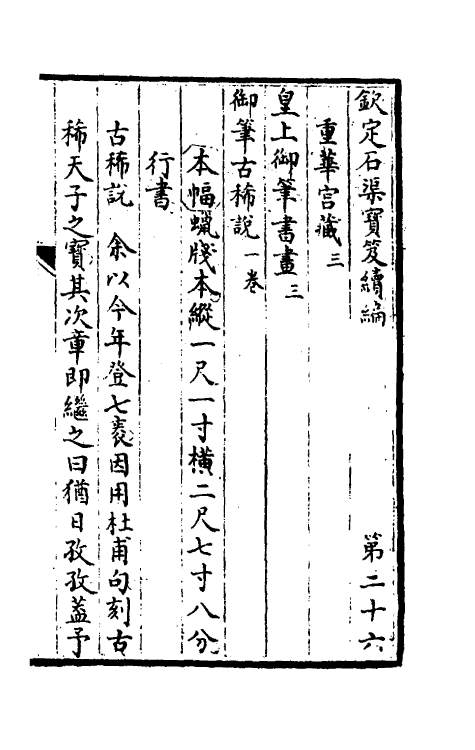 欽定石渠寶笈續編　第二十六
重華宮藏三
皇上御筆書畫三
御筆古稀說一卷
本幅蠟牋本縱一尺一寸橫二尺七寸八分
行書
古稀說　余以今年登七袠因用杜甫句刻古
稀天子之寶其次章即繼之曰猶日孜孜葢予